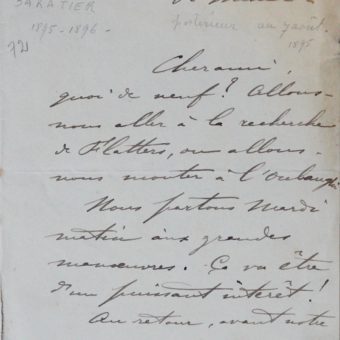 SABATIER
1895-1896-
postérieur au 7 août
1895
Cher ami,
quoi de neuf? Allons-
nous aller à la recherche
de Flatters, ou allons-
nous monter à l'Oubangui
Nous partons mardi
matin aux grandes
manœuvres. Ça va être
d'un puissant intérêt!
Au retour, avant notre